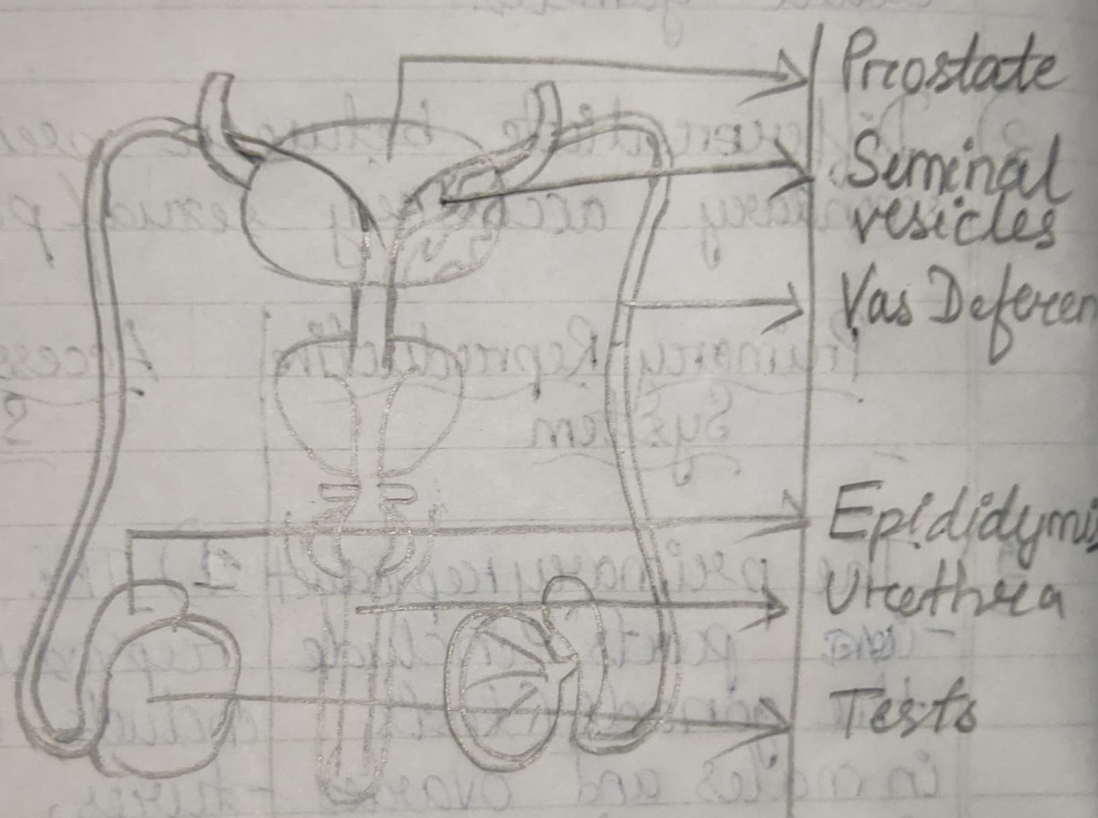 Prostate
Seminal
vesicles
Vas Deferen
Epididymis
Urethra
Tests